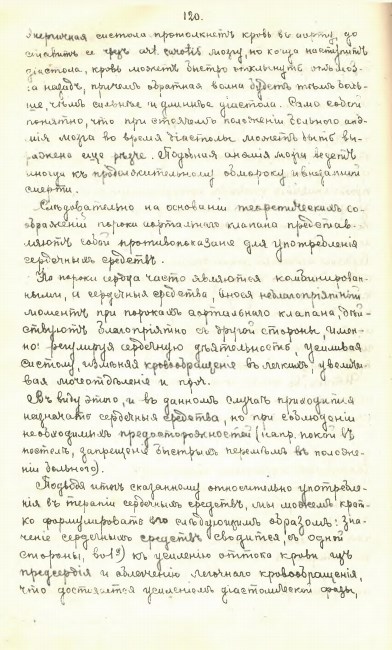 120.
Энергичная систола протолкнетъ кровь въ аорту, до
ставитъ ее чрезъ art. carotis мозгу, но когда наступитъ
діастола, кровь можетъ быстро отхлынуть отъ моз-
га назадъ, причемъ обратная волна будетъ тѣмъ боль-
ше, чѣмъ сильнѣе и длиннѣе діастола. Само собою
понятно, что при стоячемъ положеніи больного анэ-
мія мозга во время діастолы можетъ быть вы-
ражена еще рѣзче. Подобная анэмія мозга ведетъ
иногда къ продолжительному обмороку и внезапной
смерти.
Слѣдовательно на основаніи теоретическихъ со-
ображеній пороки аортальнаго клапана представ-
ляютъ собой противопоказаніе для употребленія
сердечныхъ средствъ.
Но пороки сердца часто являются комбинирован-
ными, и сердечныя средства, внося неблагопріятный
моментъ при порокахъ аортальнаго клапана, дѣй-
ствуютъ благопріятно съ другой стороны, имен-
но: регулируя сердечную дѣятельность, усиливая
систолу, измѣняя кровообращеніе въ легкихъ, увеличи-
вая мочеотдѣленіе и пр.
Въ виду этого, и въ данномъ случаѣ приходится
назначать сердечныя средства, но при соблюденіи
необходимыхъ предосторожностей (напр. покой въ
постели, запрещеніе быстрыхъ перемѣнъ въ положе-
ніи больного).
Подводя итогъ сказанному относительно употребле-
нія въ терапіи сердечныхъ средствъ, мы можемъ крат-
ко формулировать его слѣдующимъ образомъ: Зна-
ченіе сердечныхъ средствъ сводится, съ одной
стороны, во 1ᵒ) къ усиленію оттока крови изъ
предсердія и облегченію легочнаго кровообращенія,
что достигается усиленіемъ діастолической фазы,